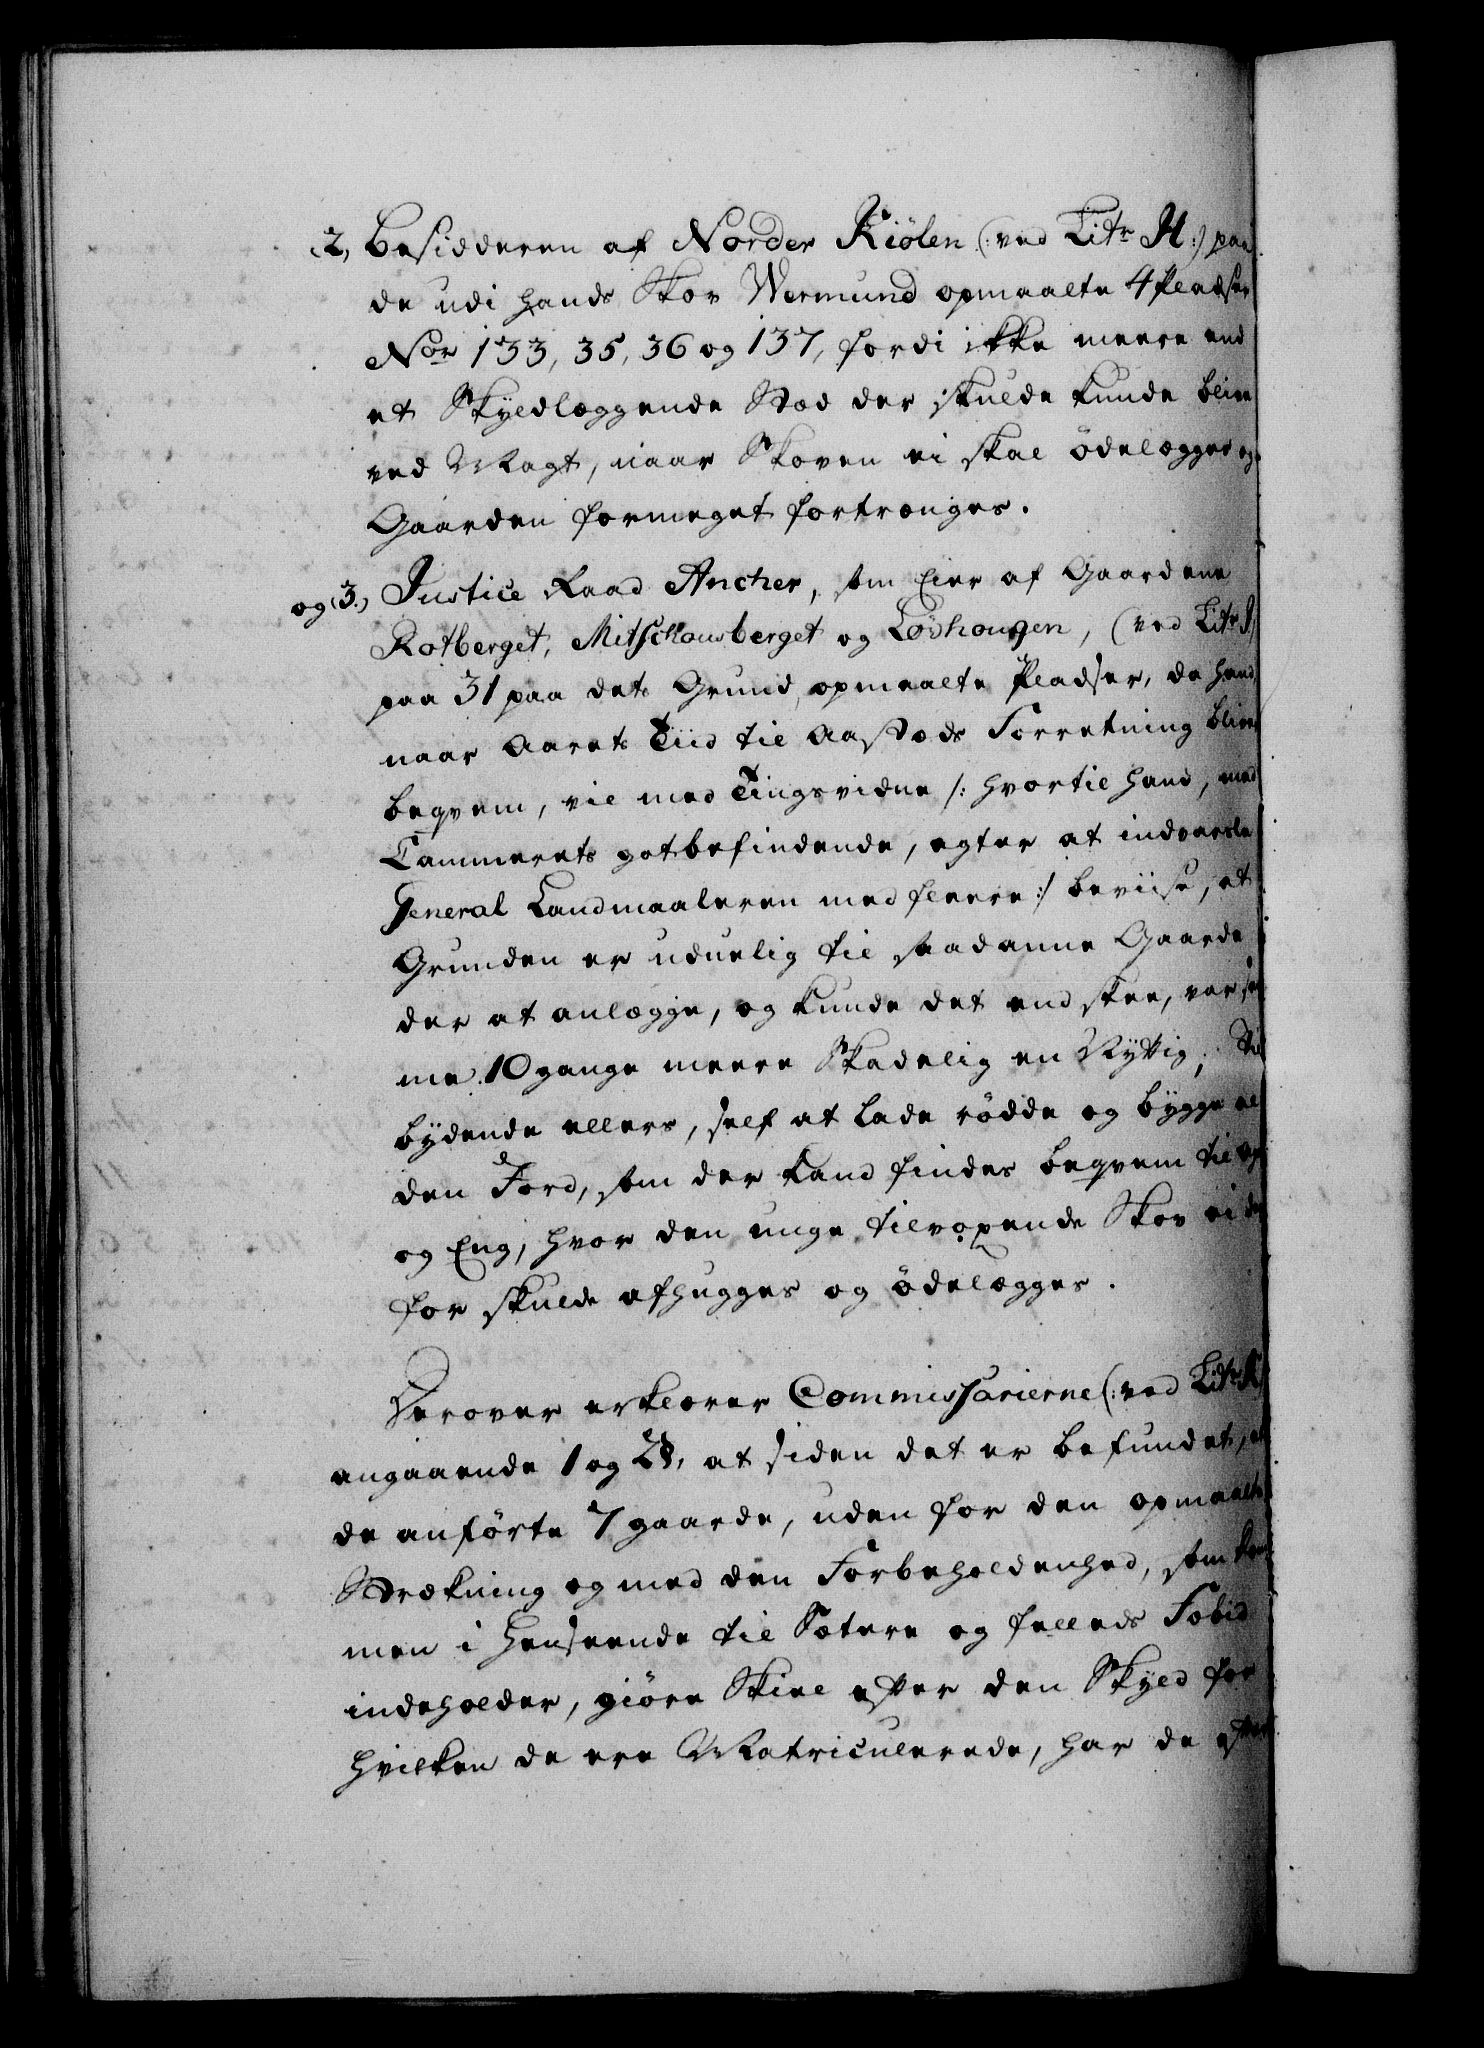 2, Besidderen af Norder Kiölen (: ved Litr H:) paa
de udi hands Skov Wermund opmaalte 4 Pladser
Nor 133, 35, 36 og 137, fordi ikke meere end
et Skyldlæggende Stæd der skulde kunde blive
ved Magt, naar Skoven ei skal ödelægges og
Gaarden formeget fortrænges.
og (3.) Justice Raad Ancher, som Eier af Gaardene
Rotberget, Mitschousberget og Lövhougen, (ved Litr
paa 31 paa dets Grund opmaalte Pladser, da hand,
naar Aarets Tiid til Aastæds Forretning bliver
beqvem, vil med Tingsvidne /: hvortil hand, med
Cammerets gotbefindende, agter at indvarsle
General Landmaaleren med fleere :/ beviise, at
Grunden er uduelig til saadanne Gaarde
der at anlægge, og kunde det end skee, var
me 10 gange meere Skadelig en Nyttig; Til
bydende ellers, self at lade rödde og bygge al
den Jord, som der kand findes beqvem til
og Eng, hvor den unge tilvoxende Skov ei
for skulde afhugges og ödelægges.
Herover erklærer Commissarierne (: ved Litr K
angaaende 1 og 2§, at siden det er befundet, at
de anförte 7 gaarde, uden for den opmaalte
Strækning og med den Forbeholdenhed, som
men i Henseende til Sætere og fælledsFöbid
indeholder, giöre Skiel efter den Skyld for
hvilken de ere Matriculerede, har de efter